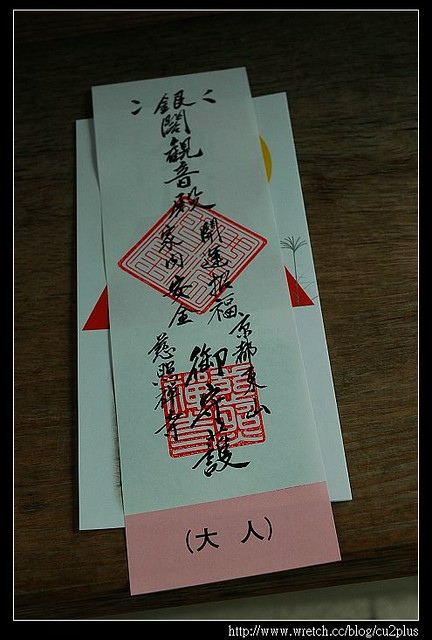 銀閣観音殿
開運招福
家内安全
京都東山
慈照禅寺
御守護
(大 人)
http://www.wretch.cc/blog/cu2plus